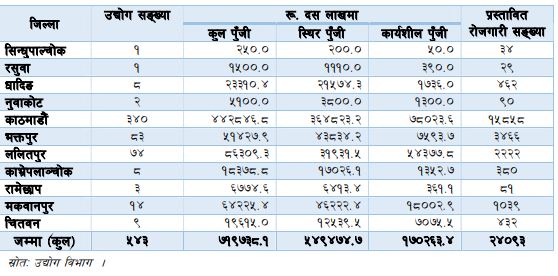 जिल्ला उद्योग सङ्ख्या रू. दस लाखमा प्रस्तावित रोजगारी सङ्ख्या
कुल पुँजी स्थिर पुँजी कार्यशील पुँजी
सिन्धुपाल्चोक १ २५०.० २००.० ५०.० ३४
रसुवा १ १५००.० १११०.० ३९०.० २९
धादिङ ८ २३३१०.४ २१५७४.३ १७३६.० ४६२
नुवाकोट २ ५१००.० ३८००.० १३००.० ९०
काठमाडौं ३४० ४४२८४६.८ ३६४८२३.२ ७८०२३.६ १५८५८
भक्तपुर ८३ ५१४२७.९ ४३८३४.२ ७५९३.७ ३४६६
ललितपुर ७४ ८६३०९.३ ३१९३१.५ ५४३७७.८ २२२२
काभ्रेपलाञ्चोक ८ १८३७८.८ १७०२६.१ १३५२.७ ३८०
रामेछाप ३ ६७७४.६ ६४१३.४ ३६१.१ ८१
मकवानपुर १४ ६४२२५.४ ४६२२२.४ १८००२.९ १०३९
चितवन ९ १९६१५.० १२५३९.५ ७०७५.५ ४३२
जम्मा (कुल) ५४३ ७१९७३८.१ ५४९४७४.७ १७०२६३.४ २४०९३
स्रोतः उद्योग विभाग ।